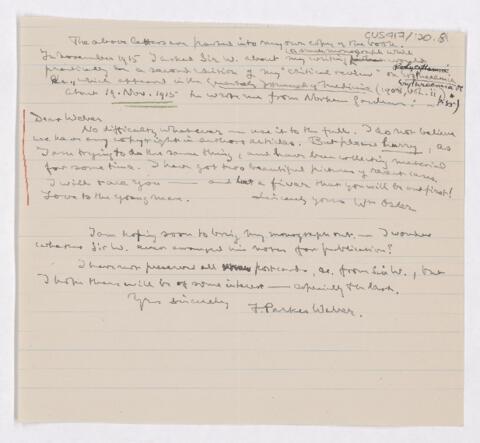 CUS417/120.8.
The above letters are pasted into my own copy of the book.
a small monograph which
In November 1915 I asked Sir W. about my writing would
practically be a second edition of my "critical review" on Polycythaemia
Erythraemia &c
which appeared in the Quarterly Journal of Medicine (1908, Vol. II)
About 19. Nov. 1915 he wrote me from Norham Gardens: —
Dear Weber
No difficulty whatever — use it to the full. I do not believe
we have any copyright in authors articles. But please hurry, as
I am trying to do the same thing, and have been collecting material
for some time. I have got two beautiful pictures of recent cases.
I will race you — and bet a fiver that you will be out first!
Love to the young man. Sincerely yours Wm Osler
I am hoping soon to bring my monograph out. — I wonder
whether Sir W. ever arranged his notes for publication?
I have not preserved all postcards, &c. from Sir W., but
I hope these will be of some interest — especially the last.
Yrs sincerely F. Parkes Weber.